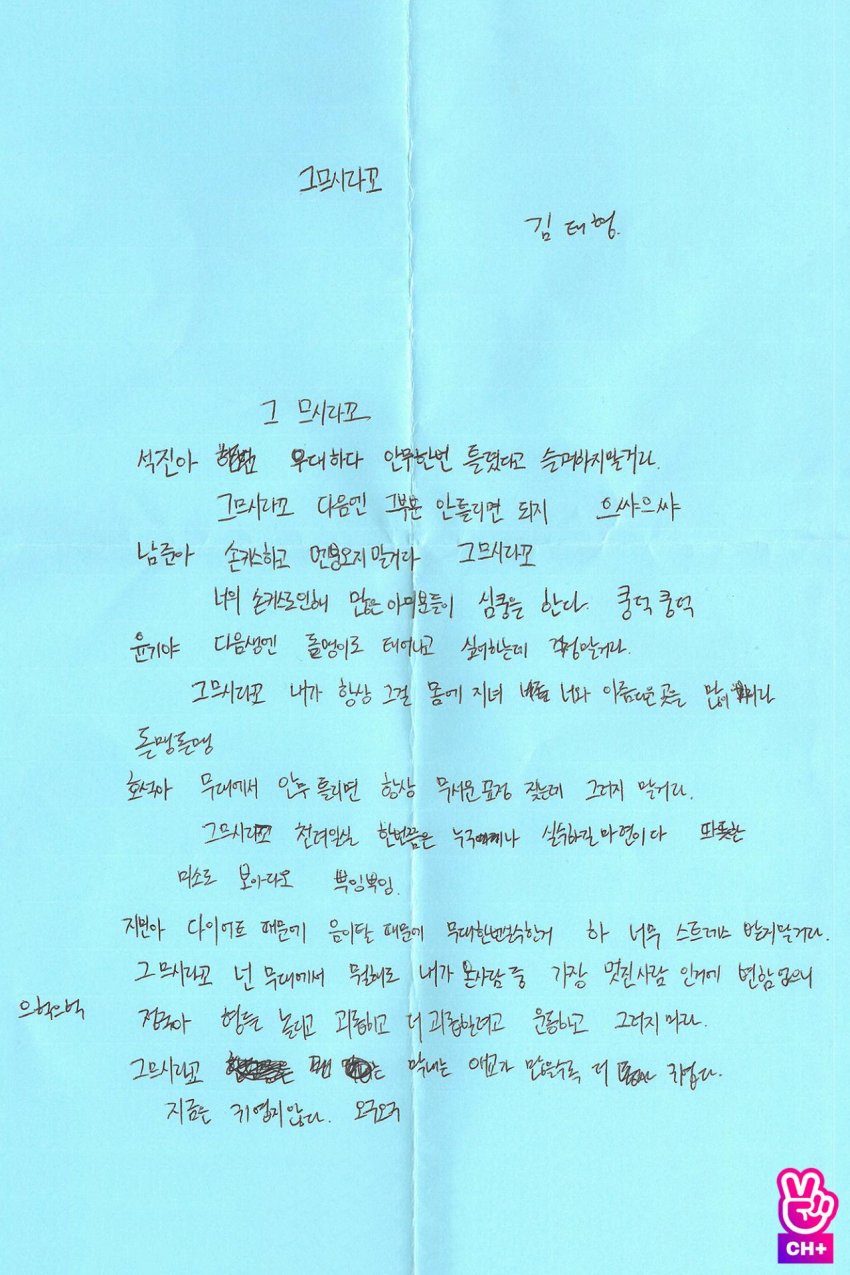 그므시라꼬
김태형.
그 므시라꼬
석진아 무대하다 안무한번 틀렸다고 슬퍼하지말거라.
그므시라꼬 다음엔 그부분 안틀리면 되지 으쌰으쌰
남준아 손키스하고 멘붕오지말거라 그므시라꼬
너의 손키스로인해 많은아미분들이 심쿵을 한다. 쿵덕쿵덕
윤기야 다음생엔 돌멩이로 태어나고 싶어하는데 걱정말거라.
그므시라꼬 내가 항상 그걸 몸에 지녀 너와 아름다운곳을 많이
돌맹돌맹
호석아 무대에서 안무틀리면 항상 무서운표정 짓는데 그러지 말거라.
그므시라꼬 천려일실 한번쯤은 누구에게나 실수하길마련이다 따뜻한
미소로 보아다오 뿌잉뿌잉.
지민아 다이어트 때문에 음이탈 때문에 무대한번실수한거 하 너무 스트레스 받지말거라.
그므시라꼬 넌 무대에서 뭘해도 내가 본사람중 가장 멋진사람 인거에 변함없으니
으헉으헉
정국아 형들 놀리고 괴롭히고 더 괴롭히려고 운동하고 그러지마라.
그므시라꼬 막내는 애교가 많을수록 더 귀엽다.
지금은 귀엽지않다. 오구오구
CH+